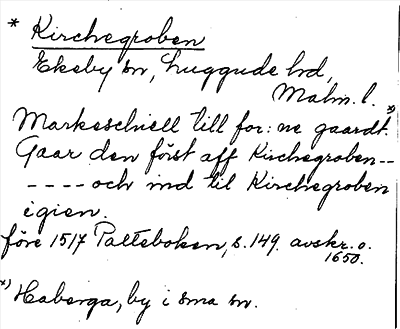 * Kirchegroben
Ekeby sn, Luggude hd,
Malm. l.
Markeschiell till for: ne gaardt. x)
Gaar den först aff Kirchegroben--
----och ind til Kirchegroben
igien.
före 1517 Palteboken, s. 149. avskr. o.
1650.
x) Haberga, by i sma sn.